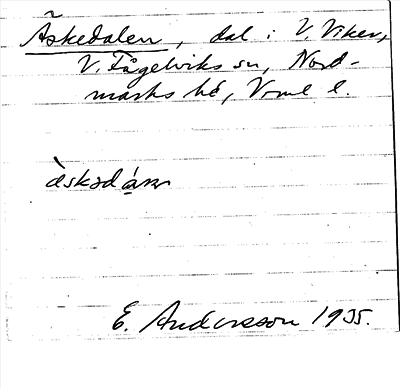 Äskedalen, dal i V. Viker,
V. Fågelviks sn, Nord-
marks hd, Vrml l.
E. Andersson 1935.